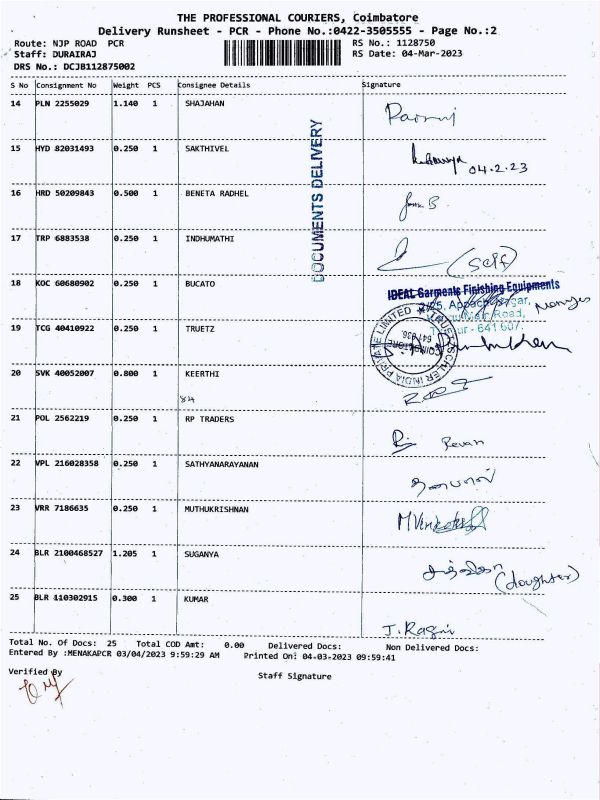 THE PROFESSIONAL COURIERS, Coimbatore
Delivery Runsheet - PCR - Phone No.:0422-3505555 - Page No.:2
Route: NJP ROAD PCR
RS No.: 1128750
Staff: DURAIRAJ
RS Date: 04-Mar-2023
DRS No.: DCJB112875002
S No Consignment No Weight PCS Consignee Details Signature
14 PLN 2255029 1.140 1 SHAJAHAN
15 HYD 82031493 0.250 1 SAKTHIVEL
04.2.23
DOCUMENTS DELIVERY
16 HRD 50209843 0.500 1 BENETA RADHEL
17 TRP 6883538 0.250 1 INDHUMATHI
(Self)
18 KOC 60680902 0.250 1 BUCATO
IDEAL Garments Finishing Equipments
Road,
641 607.
19 TCG 40410922 0.250 1 TRUETZ
20 SVK 40052007 0.800 1 KEERTHI
84
21 POL 2562219 0.250 1 RP TRADERS
Revan
22 VPL 216028358 0.250 1 SATHYANARAYANAN
23 VRR 7186635 0.250 1 MUTHUKRISHNAN
24 BLR 2100468527 1.205 1 SUGANYA
(doughter)
25 BLR 110302915 0.300 1 KUMAR
Total No. Of Docs: 25 Total COD Amt: 0.00 Delivered Docs: Non Delivered Docs:
Entered By :MENAKAPCR 03/04/2023 9:59:29 AM Printed On: 04-03-2023 09:59:41
Verified By
Staff Signature